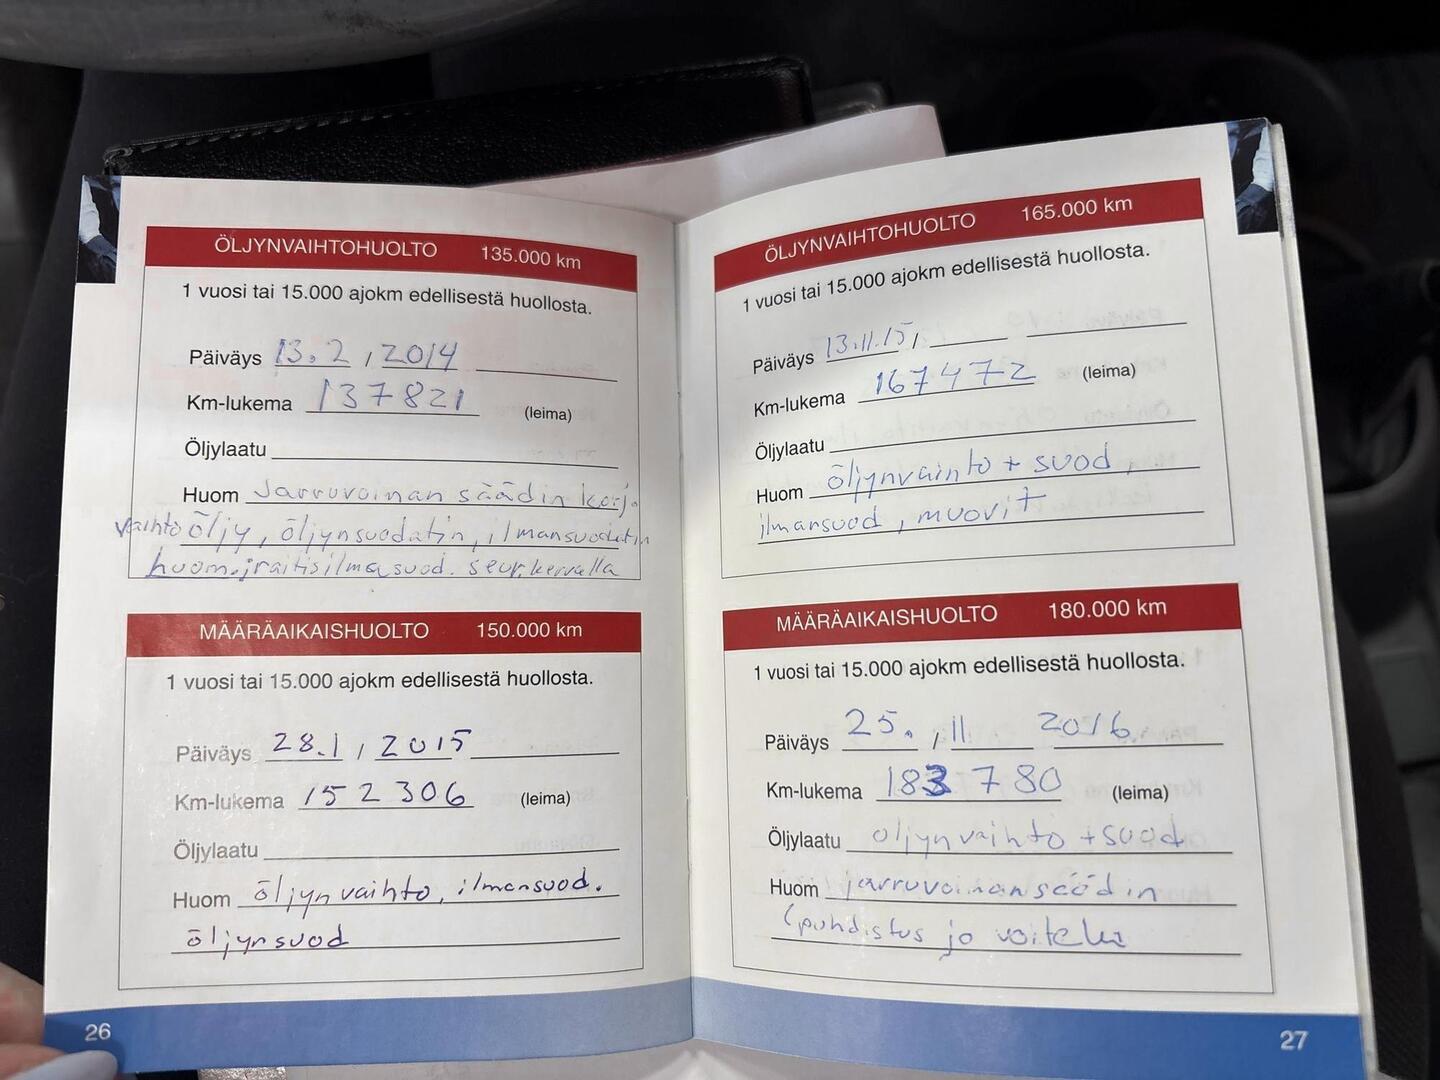 ÖLJYNVAIHTOHUOLTO 135.000 km
1 vuosi tai 15.000 ajokm edellisestä huollosta.
Päiväys 13.2 , 2014
Km-lukema 137821 (leima)
Öljylaatu
Huom Jarruvoiman säädin korj.
vaihto öljy, öljynsuodatin, ilmansuodatin
huom. raitisilmasuod. seur. kerralla
MÄÄRÄAIKAISHUOLTO 150.000 km
1 vuosi tai 15.000 ajokm edellisestä huollosta.
Päiväys 28.1 , 2015
Km-lukema 152306 (leima)
Öljylaatu
Huom öljynvaihto, ilmansuod.
öljynsuod
26
ÖLJYNVAIHTOHUOLTO 165.000 km
1 vuosi tai 15.000 ajokm edellisestä huollosta.
Päiväys 13.11.15,
Km-lukema 167472 (leima)
Öljylaatu
Huom öljynvaihto + suod,
ilmansuod, muovit
MÄÄRÄAIKAISHUOLTO 180.000 km
1 vuosi tai 15.000 ajokm edellisestä huollosta.
Päiväys 25. , 11 2016
Km-lukema 183780 (leima)
Öljylaatu öljynvaihto + suod
Huom jarruvoimansäädin
(puhdistus ja voitelu
27